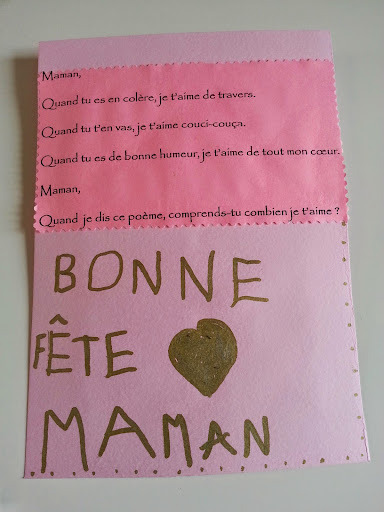 Maman,
Quand tu es en colère, je t'aime de travers.
Quand tu t'en vas, je t'aime couci-couça.
Quand tu es de bonne humeur, je t'aime de tout mon cœur.
Maman,
Quand je dis ce poème, comprends-tu combien je t'aime ?
BONNE
FÊTE
MAMAN